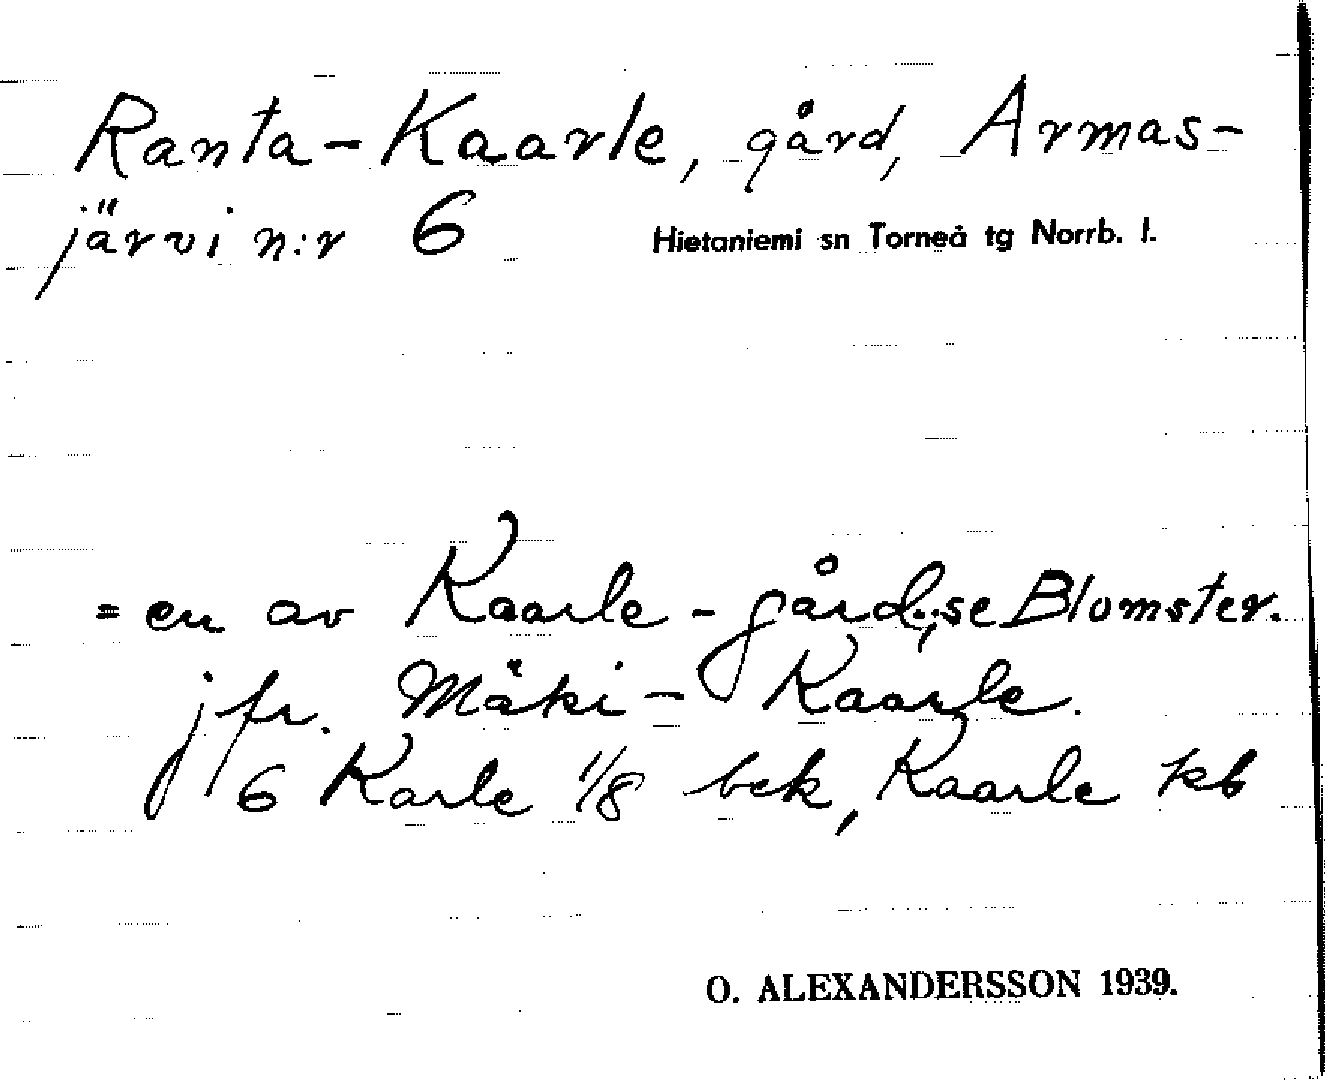 Ranta-Kaarle, gård, Armas-
järvi n:r 6 Hietaniemi sn Torneå tg Norrb. l.
= en av Kaarle-gård.; se Blomster.
jfr. Mäki-Kaarle.
6 Karle 1/8 bek, Kaarle kb
O. ALEXANDERSSON 1939.